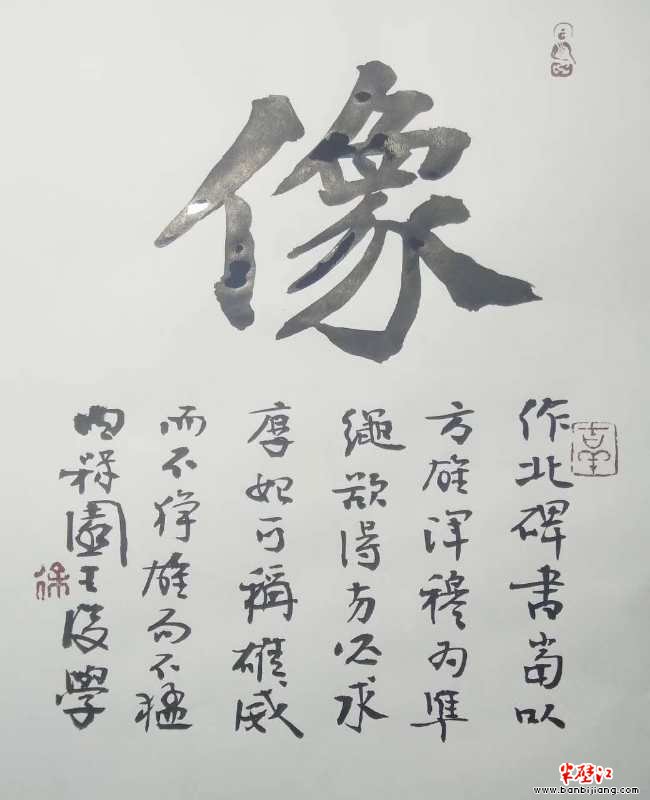 像
作北碑書當以
方雄渾穆為準
繩欲得方必求
厚始可稱雄威
而不狰雄而不猛
園主後學
半壁江
www.banbijiang.com